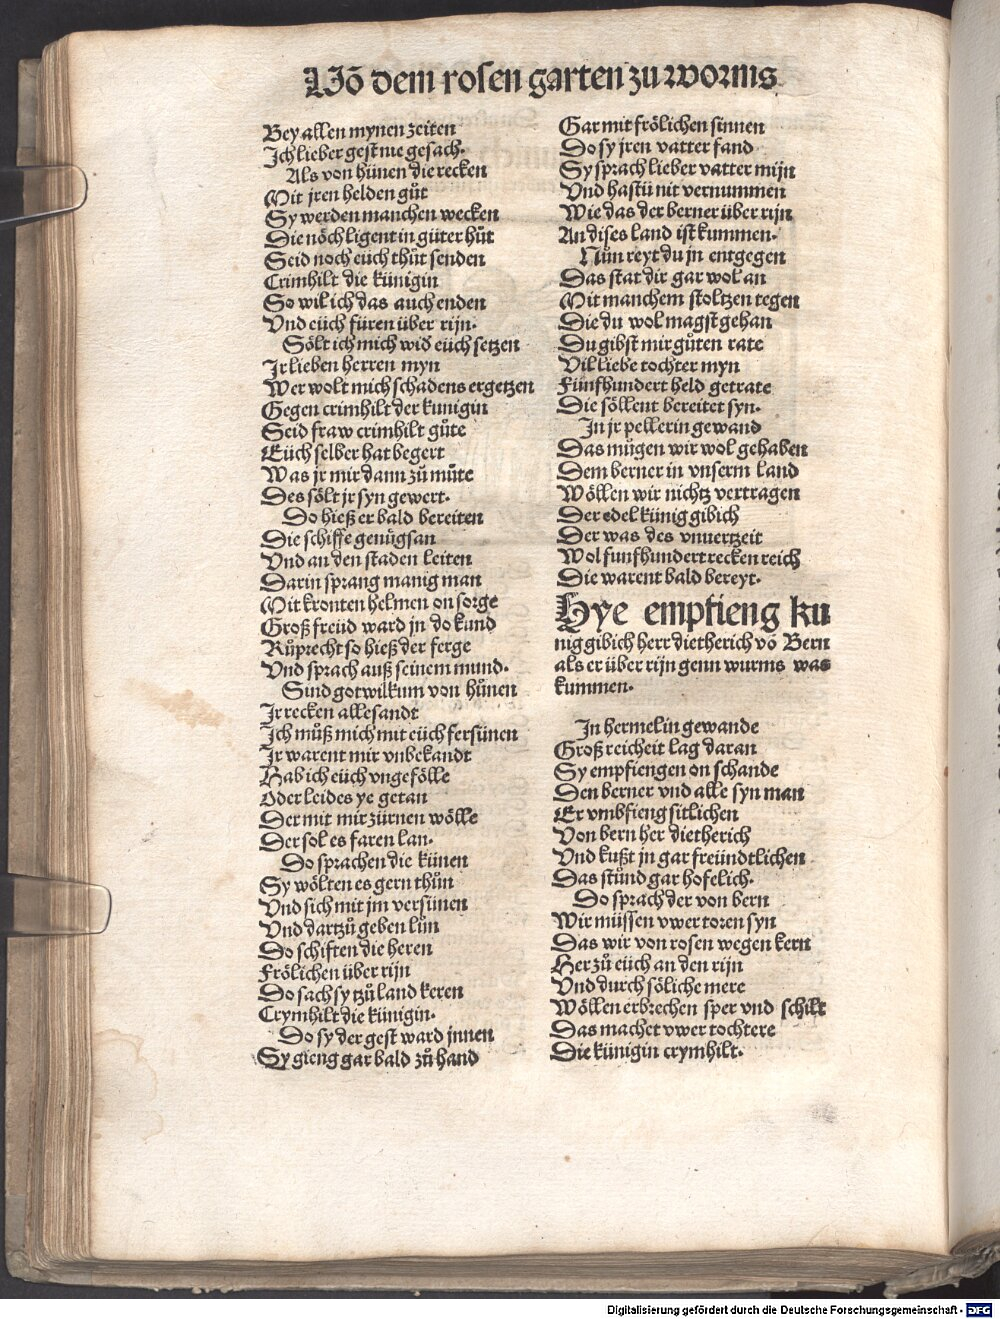 Uō dem rosen garten zu worms
Bey allen mynen zeiten
Ich lieber gest nie gesach.
Als von hünen die recken
Mit jren helden gůt
Sy werden manchen wecken
Die nöch ligent in güter hůt
Seid noch eüch thůt senden
Crimhilt die künigin
So wil ich das auch enden
Vnd eüch füren über rijn.
Sölt ich mich wid eüch setzen
Ir lieben herren myn
Wer wolt mich schadens ergetzen
Gegen crimhilt der kunigin
Seid fraw crimhilt gůte
Eüch selber hat begert
Was jr mir dann zů můte
Des sölt jr syn gewert.
Do hieß er bald bereiten
Die schiffe genůgsan
Vnd an den staden leiten
Darin sprang manig man
Mit kronten helmen on sorge
Groß freüd ward jn do kund
Růprecht so hieß der ferge
Vnd sprach auß seinem mund.
Sind gotwilkum von hůnen
Ir recken allesandt
Ich můß mich mit eüch fersünen
Ir warent mir vnbekandt
Hab ich eüch vngefölle
Oder leides ye getan
Der mit mir zürnen wölle
Der sol es faren lan.
Do sprachen die künen
Sy wölten es gern thůn
Vnd sich mit jm versünen
Vnd dartzů geben lůn
Do schiften die heren
Frölichen über rijn
Do sach sy tzů land keren
Crymhilt die künigin.
Do sy der gest ward jnnen
Sy gieng gar bald zů hand
Gar mit frölichen sinnen
Do sy jren vatter fand
Sy sprach lieber vatter mijn
Vnd hastü nit vernummen
Wie das der berner über rijn
An dises land ist kummen.
Nün reyt du jn entgegen
Das stat dir gar wol an
Mit manchem stoltzen tegen
Die du wol magst gehan
Du gibst mir gůten rate
Vil liebe tochter myn
Fünfhundert held getrate
Die söllent bereitet syn.
In jr pellerin gewand
Das mügen wir wol gehaben
Dem berner in vnserm land
Wöllen wir nichtz vertragen
Der edel künig gibich
Der was des vnuertzeit
Wol funfhundert recken reich
Die warent bald bereyt.
Hye empfieng ku
nig gibich herr dietherich vō Bern
als er über rijn genn wurms was
kummen.
In hermelin gewande
Groß reicheit lag daran
Sy empfiengen on schande
Den berner vnd alle syn man
Er vmbfieng sitlichen
Von bern her dietherich
Vnd kußt jn gar freündtlichen
Das stůnd gar hofelich.
Do sprach der von bern
Wir müssen vwer toren syn
Das wir von rosen wegen kern
Her zů eüch an den rijn
Vnd durch söliche mere
Wöllen erbrechen sper vnd schilt
Das machet vwer tochtere
Die künigin crymhilt.
Digitalisierung gefördert durch die Deutsche Forschungsgemeinschaft - DFG